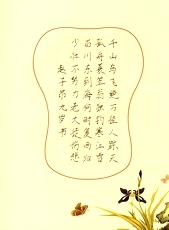 千山鸟飞绝万径人踪灭
孤舟蓑笠翁独钓寒江雪
百川东到海何时复西归
少壮不努力老大徒伤悲
赵子昂九岁书